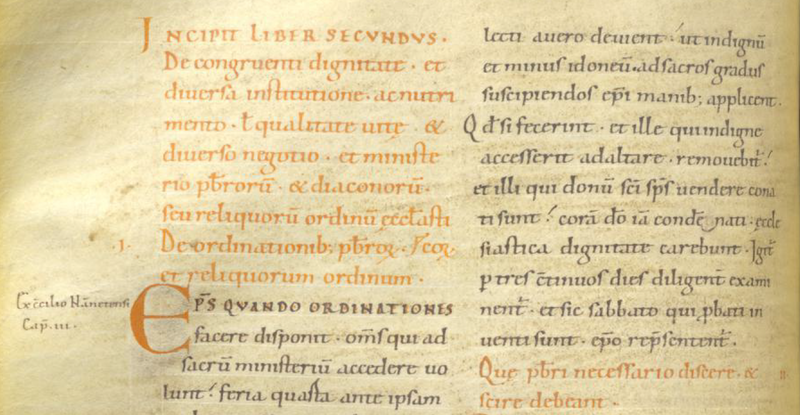 INCIPIT LIBER SECVNDVS.
De congruenti dignitate · et
diversa institutione · ac nutri
mento · ł qualitate uitę · &
diuerso negotio · et ministe
rio pƀrorū · & diaconorū·
seu reliquorū ordinū ecclasti
·I· De ordinationib; pƀroꝝ ·
et reliquorum ordinum ·
Ex c̄cilio Nānetensi
Cap̄. iii.
EP̄S QVANDO ORDINATIONES
facere disponit · om̄s qui ad
sacrū ministeriū accedere uo
lunt · feria quarta ante ipsam
lecti auero deuient · ut indignū
et minus idoneū · ad sacros gradus
suscipiendos ep̄i manib; applicent.
Qđ si fecerint · et ille qui indigne
accesserit ad altare · remouebit̄
et illi qui donū sc̄i sp̄s uendere cona
ti sunt · corā dō iā condēpnati · eccle
siastica dignitate carebunt · Igit̄
ꝑ tres c̄tinuos dies diligent̄ exami
nent̄ · et sic sabbato qui ꝓbati in
uenti sunt · ep̄o rep̄sentent̄·
Quę pƀri necessario discere · &
scire debeant · II